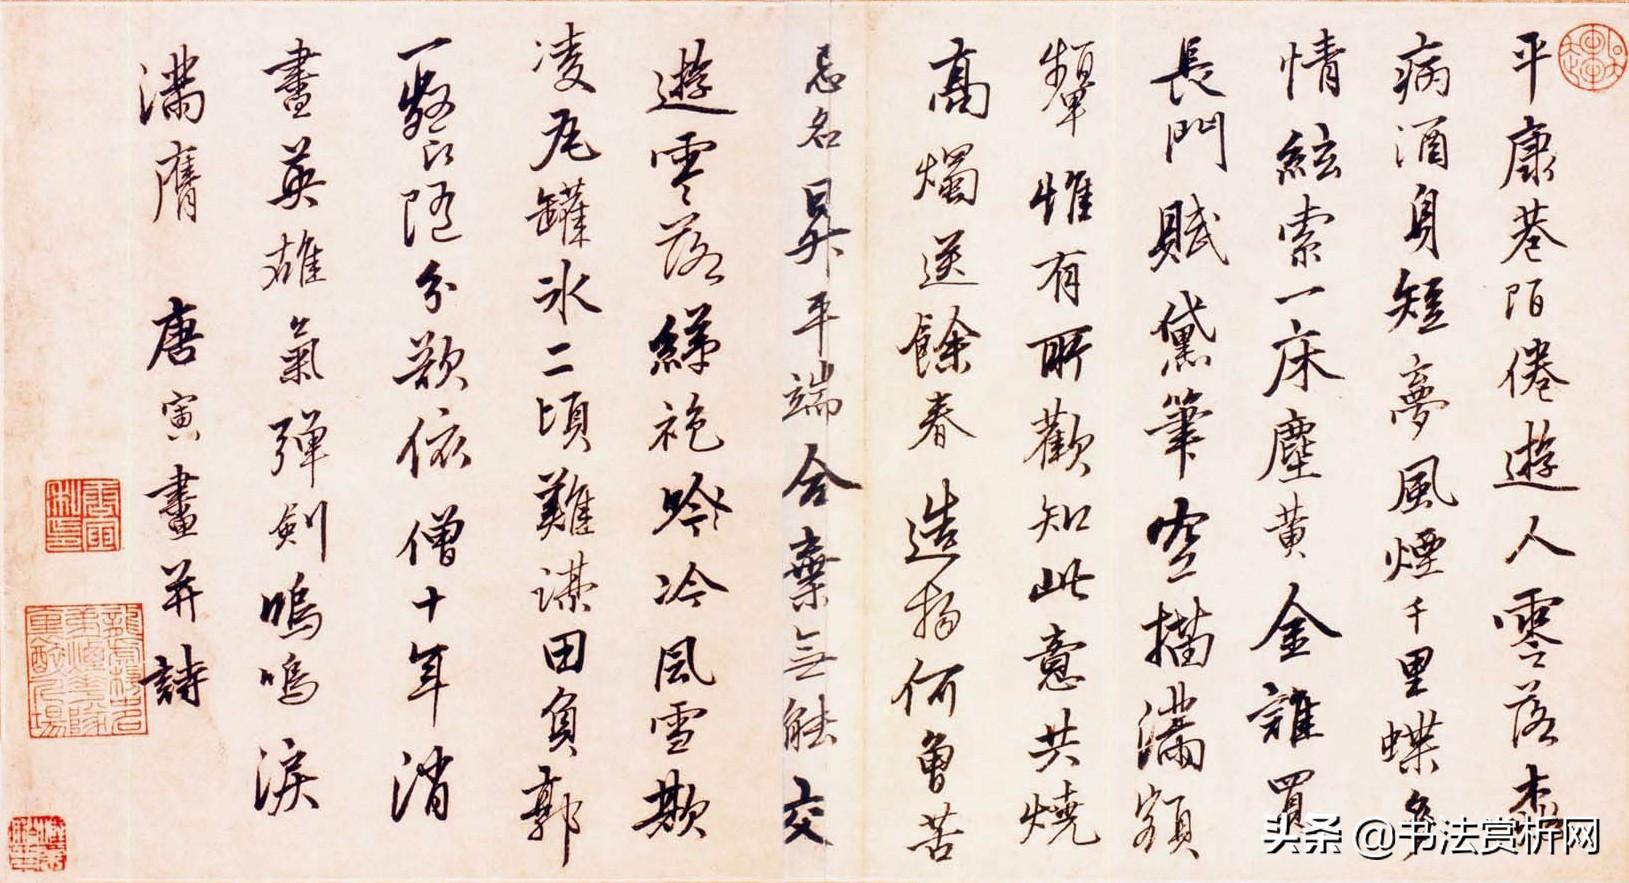 平康巷陌倦遊人零落
病酒身短夢風煙千里蝶多
情絃索一床塵黃金誰買
長門賦黛筆空描滿額
顰惟有所歡知此意共燒
高燭送餘春造物何曾苦
忌名昇平端合棄無能交
遊零落綈袍吟冷風雪欺
凌瓦罐冰二頃難謀田負郭
一餐隨分欲依僧十年消
盡英雄氣彈劍嗚嗚淚
滿膺 唐寅畫并詩
头条 @书法赏析网